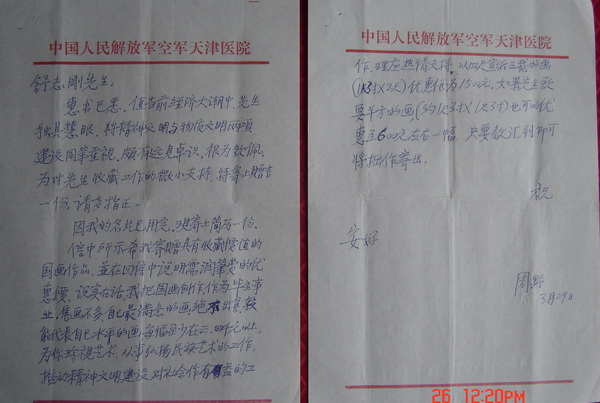 中国人民解放军空军天津医院
舒志刚先生:
惠书已悉,值当前经济大潮中,先生
独具慧眼,将精神文明与物质文明两项
建设同等重视,颇有远见卓识,很为敬佩。
为对先生收藏工作的微小支持,特寄上赠言
一份,请多指正。
因我的名片已用完,现寄上简历一份。
信中所示希我寄赠具有收藏价值的
国画作品,并在回信中说明需润笔费的优
惠价,说实在话,我把国画创作作为毕生事
业,售画不多,自己最满意的画绝不出卖,较
能代表自己水平的画,每幅至少在三、四千元以上,
为你珍视艺术,从事弘扬民族艺术的工作,
推动精神文明建设,对社会作有益的工
中国人民解放军空军天津医院
作,理应热情支持,以四尺宣开三裁的画
优惠价为1500元,如果先生欲
要平方的画(约2尺3寸×2尺3寸)也可以优
惠至600元左右一幅,只要款汇到即可
将拙作寄出。
祝
安好
周野
3月29日
26 12:20PM